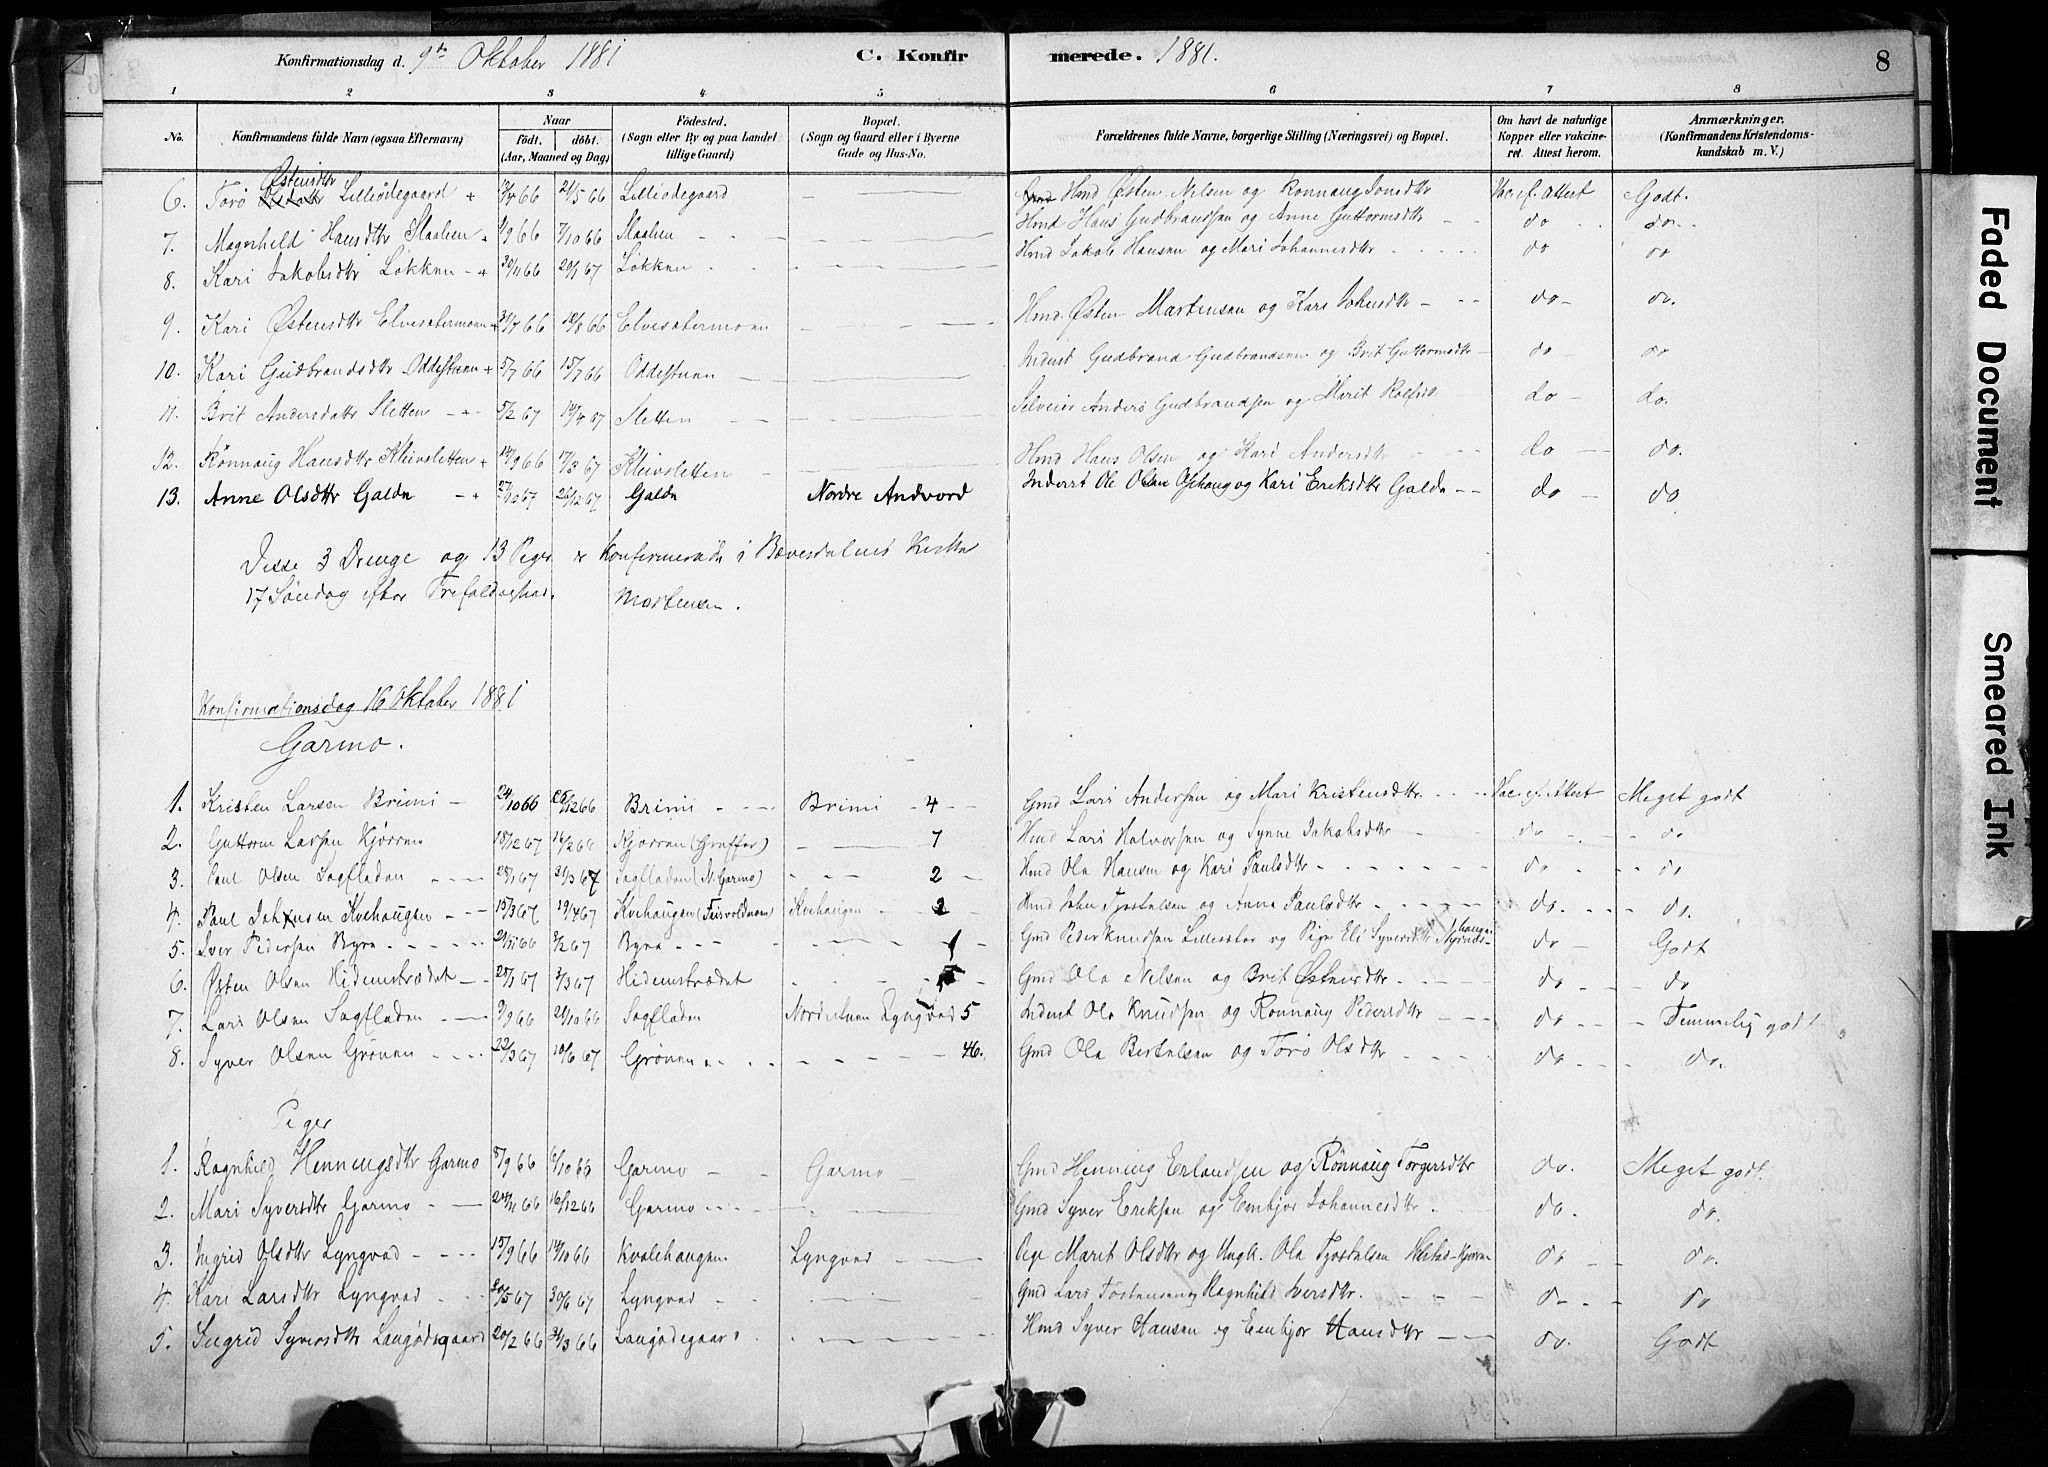 Konfirmationsdag d. 9de Oktober 1881 C. Konfirmerede. 1881. 8
1 2 3 4 5 6 7 8
No. Konfirmandens fulde Navn (ogsaa Efternavn) Naar født. døbt. (Aar, Maaned og Dag) Fødested. (Sogn eller By og paa Landet tillige Gaard) Bopæl. (Sogn og Gaard eller i Byerne Gade og Hus-No. Forældrenes fulde Navne, borgerlige Stilling (Næringsvei) og Bopæl. Om havt de naturlige Kopper eller vakcineret. Attest herom. Anmærkninger. (Konfirmandens Kristendomskundskab m. V.)
6. Torø Østensdtr Lilliødegaard + 66 21/5 66 Lilliødegaard — Hmd Østen Nilsen og Rønnaug Vac. e. Attest Godt.
7. Magnhild Hansdtr Staalen + 9 66 7/10 66 Staalen Hmd Hans Gudbrandsen og Anne Guttormsdtr do do
8. Kari Jakobsdtr Løkken + 30/11 66 20/1 67 Løkken Hmd Jakob Hansen og Mari Johannesdtr do do
9. Kari Østensdtr Elvesætermoen + 31/7 66 12/8 66 Elvesætermoen Hmd. Østen Mortensen og Kari Johnsdtr do do.
10. Kari Gudbrandsdtr Oddestuen + 5/7 66 15/7 66 Oddestuen Inderst Gudbrand Gudbrandsen og Brit Guttormsdtr do do
11. Brit Andersdatr Sletten + 5/2 67 14/4 67 Sletten Selveier Anders Gudbrandsen og Marit Rolfsdtr do do.
12. Rønnaug Hansdtr Kleivsletten + 14/9 66 17/3 67 Kleivsletten Hmd Hans Olsen og Kari Andersdtr do do.
13. Anne Olsdtr Galde + 27/10 67 26/12 67 Galde Nordre Andvord Inderst Ole Olsen Ophaug og Kari Eriksdtr Galde do do
Disse 3 Drenge og 13 Piger er konfirmerede i Bæverdalens Kirke
17 Søndag efter Trefoldighed. Mortensen.
Konfirmationsdag 16 Oktober 1881
Garmo.
1. Kristen Larsen Brimi 24/10 66 26/12 66 Brimi Brimi 4 Gmd Lars Andersen og Mari Kristensdtr Vac. e. Attest Meget godt
2. Guttorm Larsen Kjørren 18/12 67 16/2 68 Kjørren (Gruffer) 7 Hmd Lars Halvorsen og Synne Jakobsdtr do do
3. Paul Olsen Sagfladen 28/1 67 21/3 67 Sagfladen (N. Garmo) 2 Hmd Ola Hansen og Kari Paulsdtr do do
4. Paul Johnsen Kvehaugen 15/3 67 19/4 67 Kvehaugen Kvehaugen 2 Hmd John Tjøstelsen og Anne Paulsdtr do do.
5. Iver Pedersen Byre 21/11 66 2/2 67 Byre 1 Gmd Peder Knudsen og Pige Eli Syversdtr do Godt
6. Østen Olsen Hidemstrædet 28/1 67 3/3 67 Hidemstrædet 5 Gmd Ola Nelsen og Brit Østensdtr do do
7. Lars Olsen Sagfladen 9/9 66 21/10 66 Sagfladen Nordistuen Lyngved 5 Inderst Ola Knudsen og Rønnaug Pedersdtr do Temmelig godt
8. Syver Olsen Grøven 22/3 67 10/6 67 Grøven 46. Gmd Ola Bertelsen og Torø Olsdtr do do.
Piger
1. Ragnhild Henningsdtr Garmo 5/9 66 6/10 66 Garmo Garmo Gmd Henning Erlandsen og Rønnaug Torgersdtr do. Meget godt.
2. Mari Syversdtr Garmo 24/11 66 16/12 66 Garmo Gmd Syver Eriksen og Embjør Johannesdtr do. do.
3. Ingrid Olsdtr Lyngved 15/9 66 14/10 66 Kvalehaugen Lyngved Pige Marit Olsdtr og Ungk. Ola Tjøstelsen do do.
4. Kari Larsdtr Lyngved 20/5 67 30/6 67 Lyngved Gmd Lars Tostensen og Ragnhild Iversdtr. do do
5. Ingrid Syversdtr Laugødegaard 20/2 66 31/3 66 Laugødegaard Hmd Syver Hansen og Embjør Hansdtr do. Godt
Faded Document
Smeared Ink